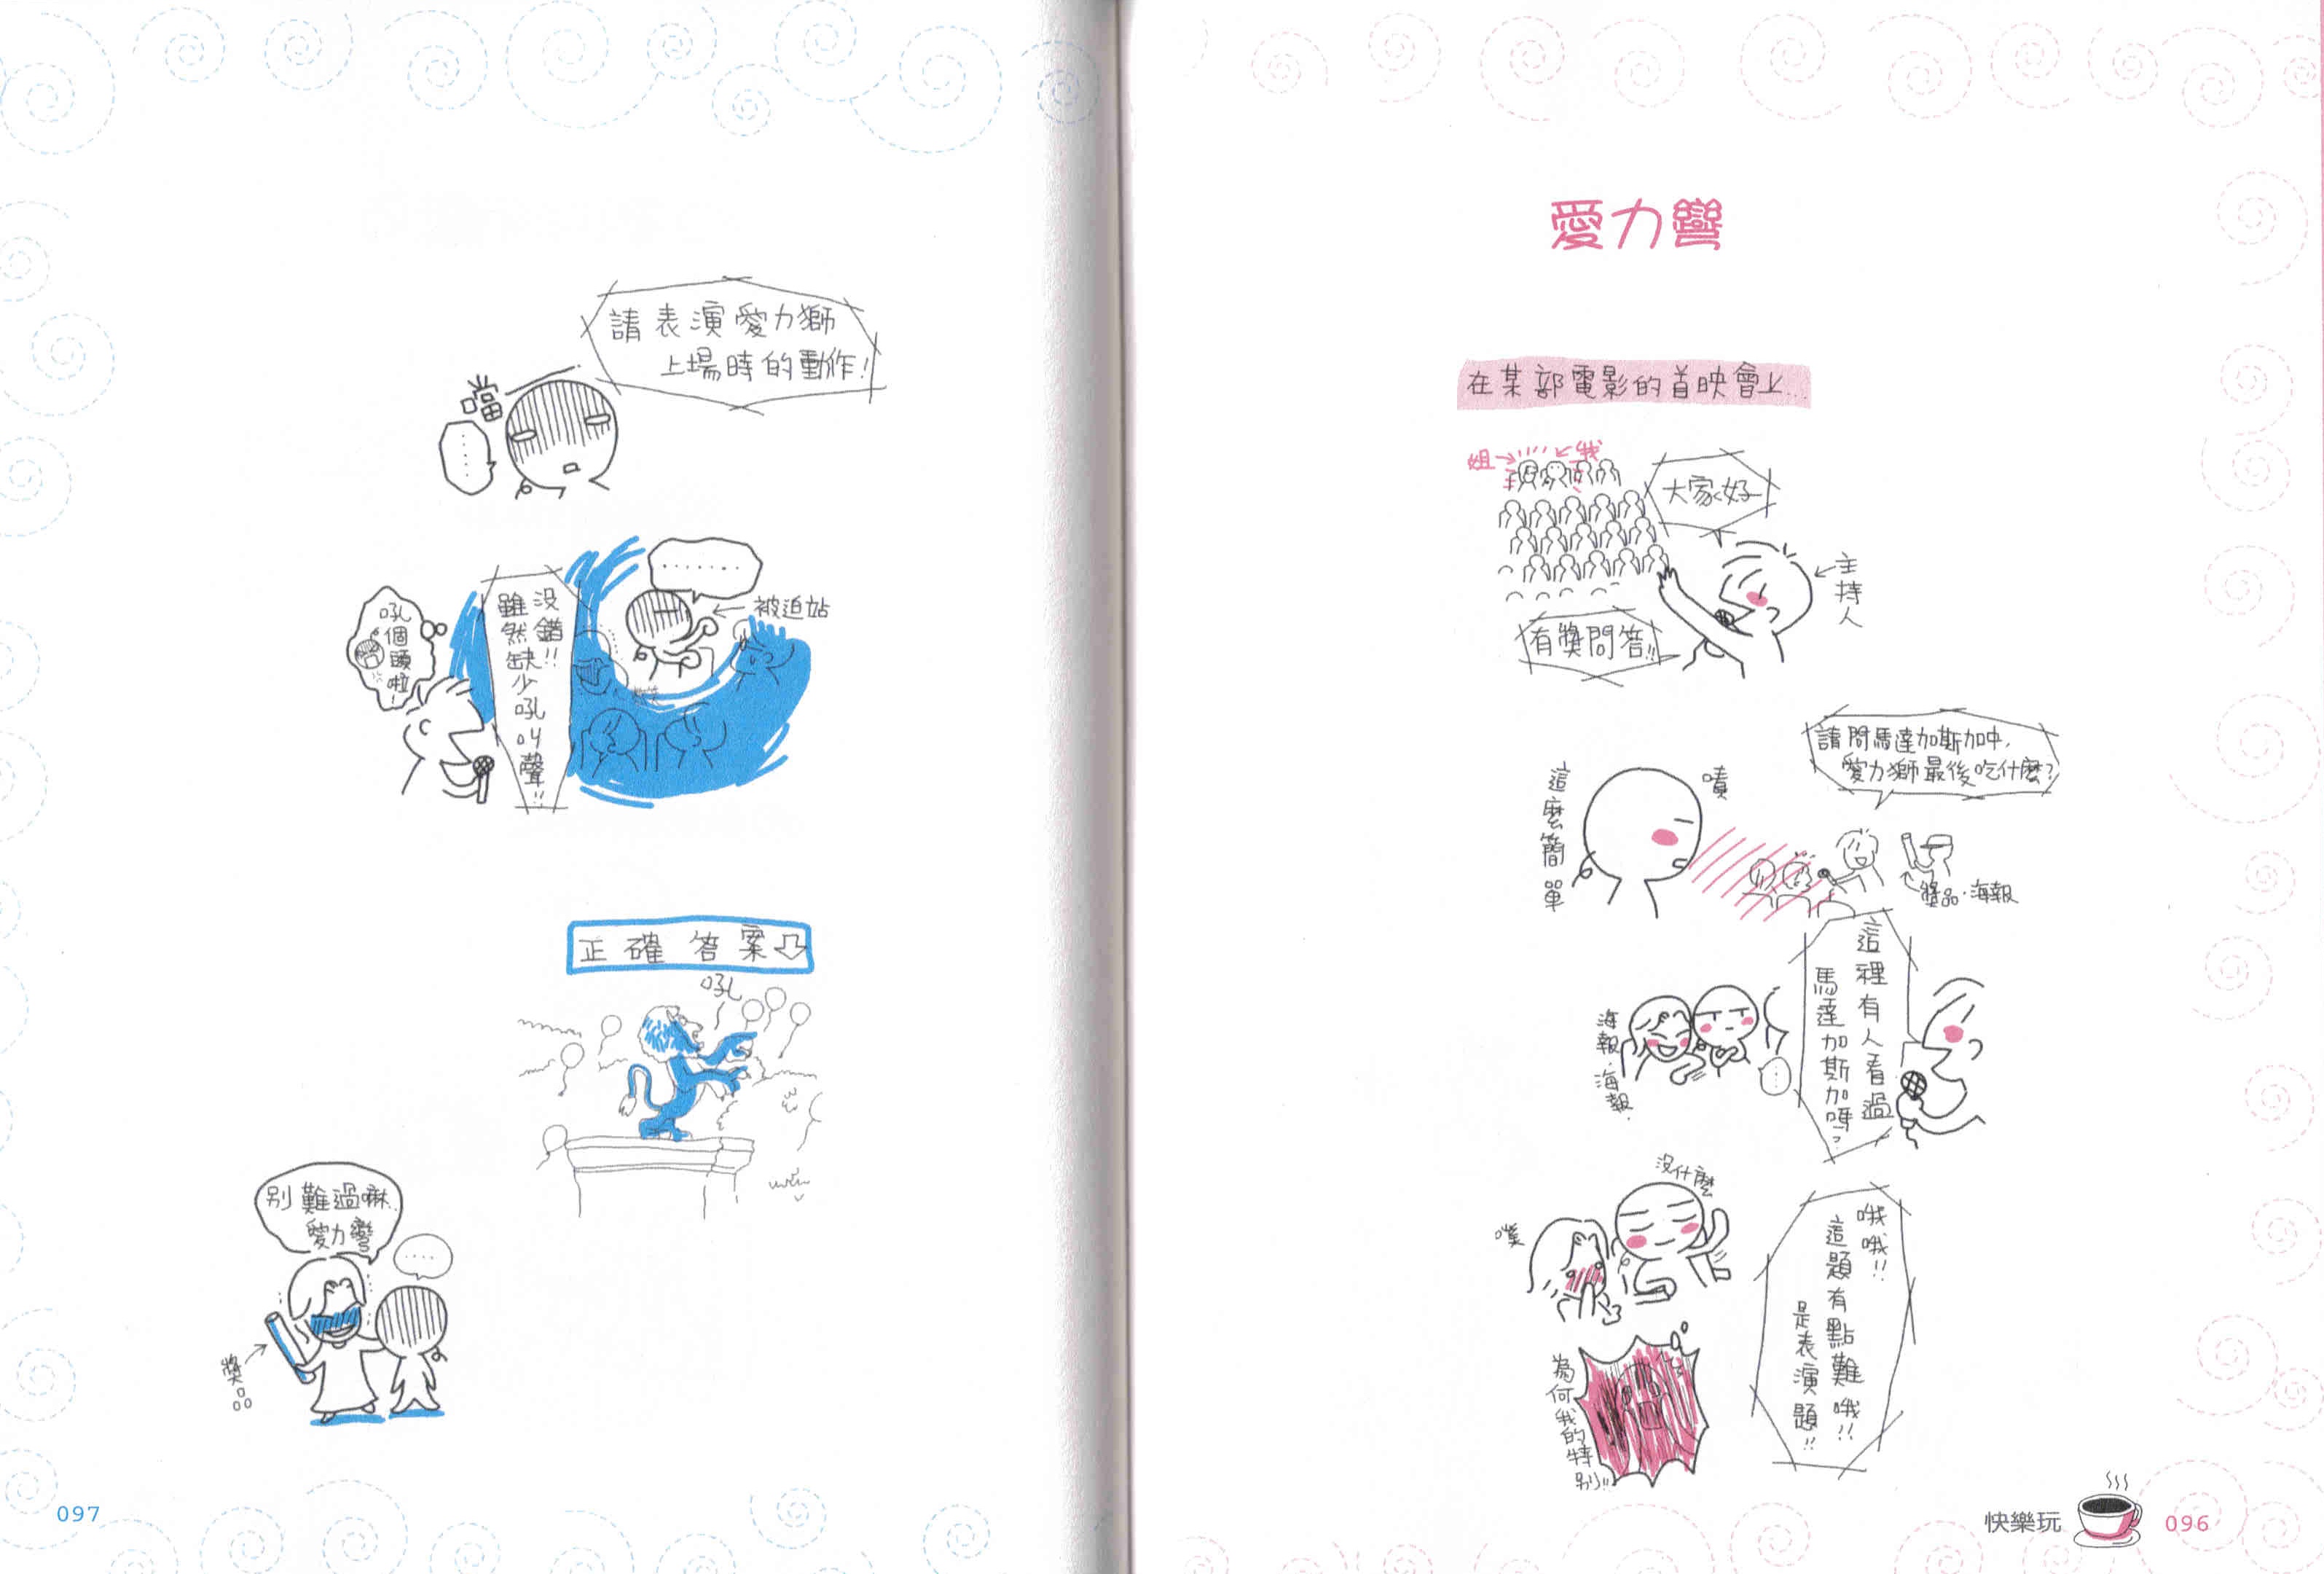 愛力彎
在某部電影的首映會上...
姐
我
大家好
主持人
有獎問答!!
請問馬達加斯加中,
愛力獅最後吃什麼?
嘖
這麼簡單
獎品·海報
這裡有人看過
馬達加斯加嗎?
海報·海報·
...
沒什麼
噗
哦哦!!
這題有點難哦!!
是表演題!!
為何我的特別!!
快樂玩
096
請表演愛力獅
上場時的動作!
噹
......
........
被迫站
沒錯!!
雖然缺少吼叫聲!!
吼個頭啦!
正確答案
吼
別難過嘛..
愛力彎
....
獎品
097